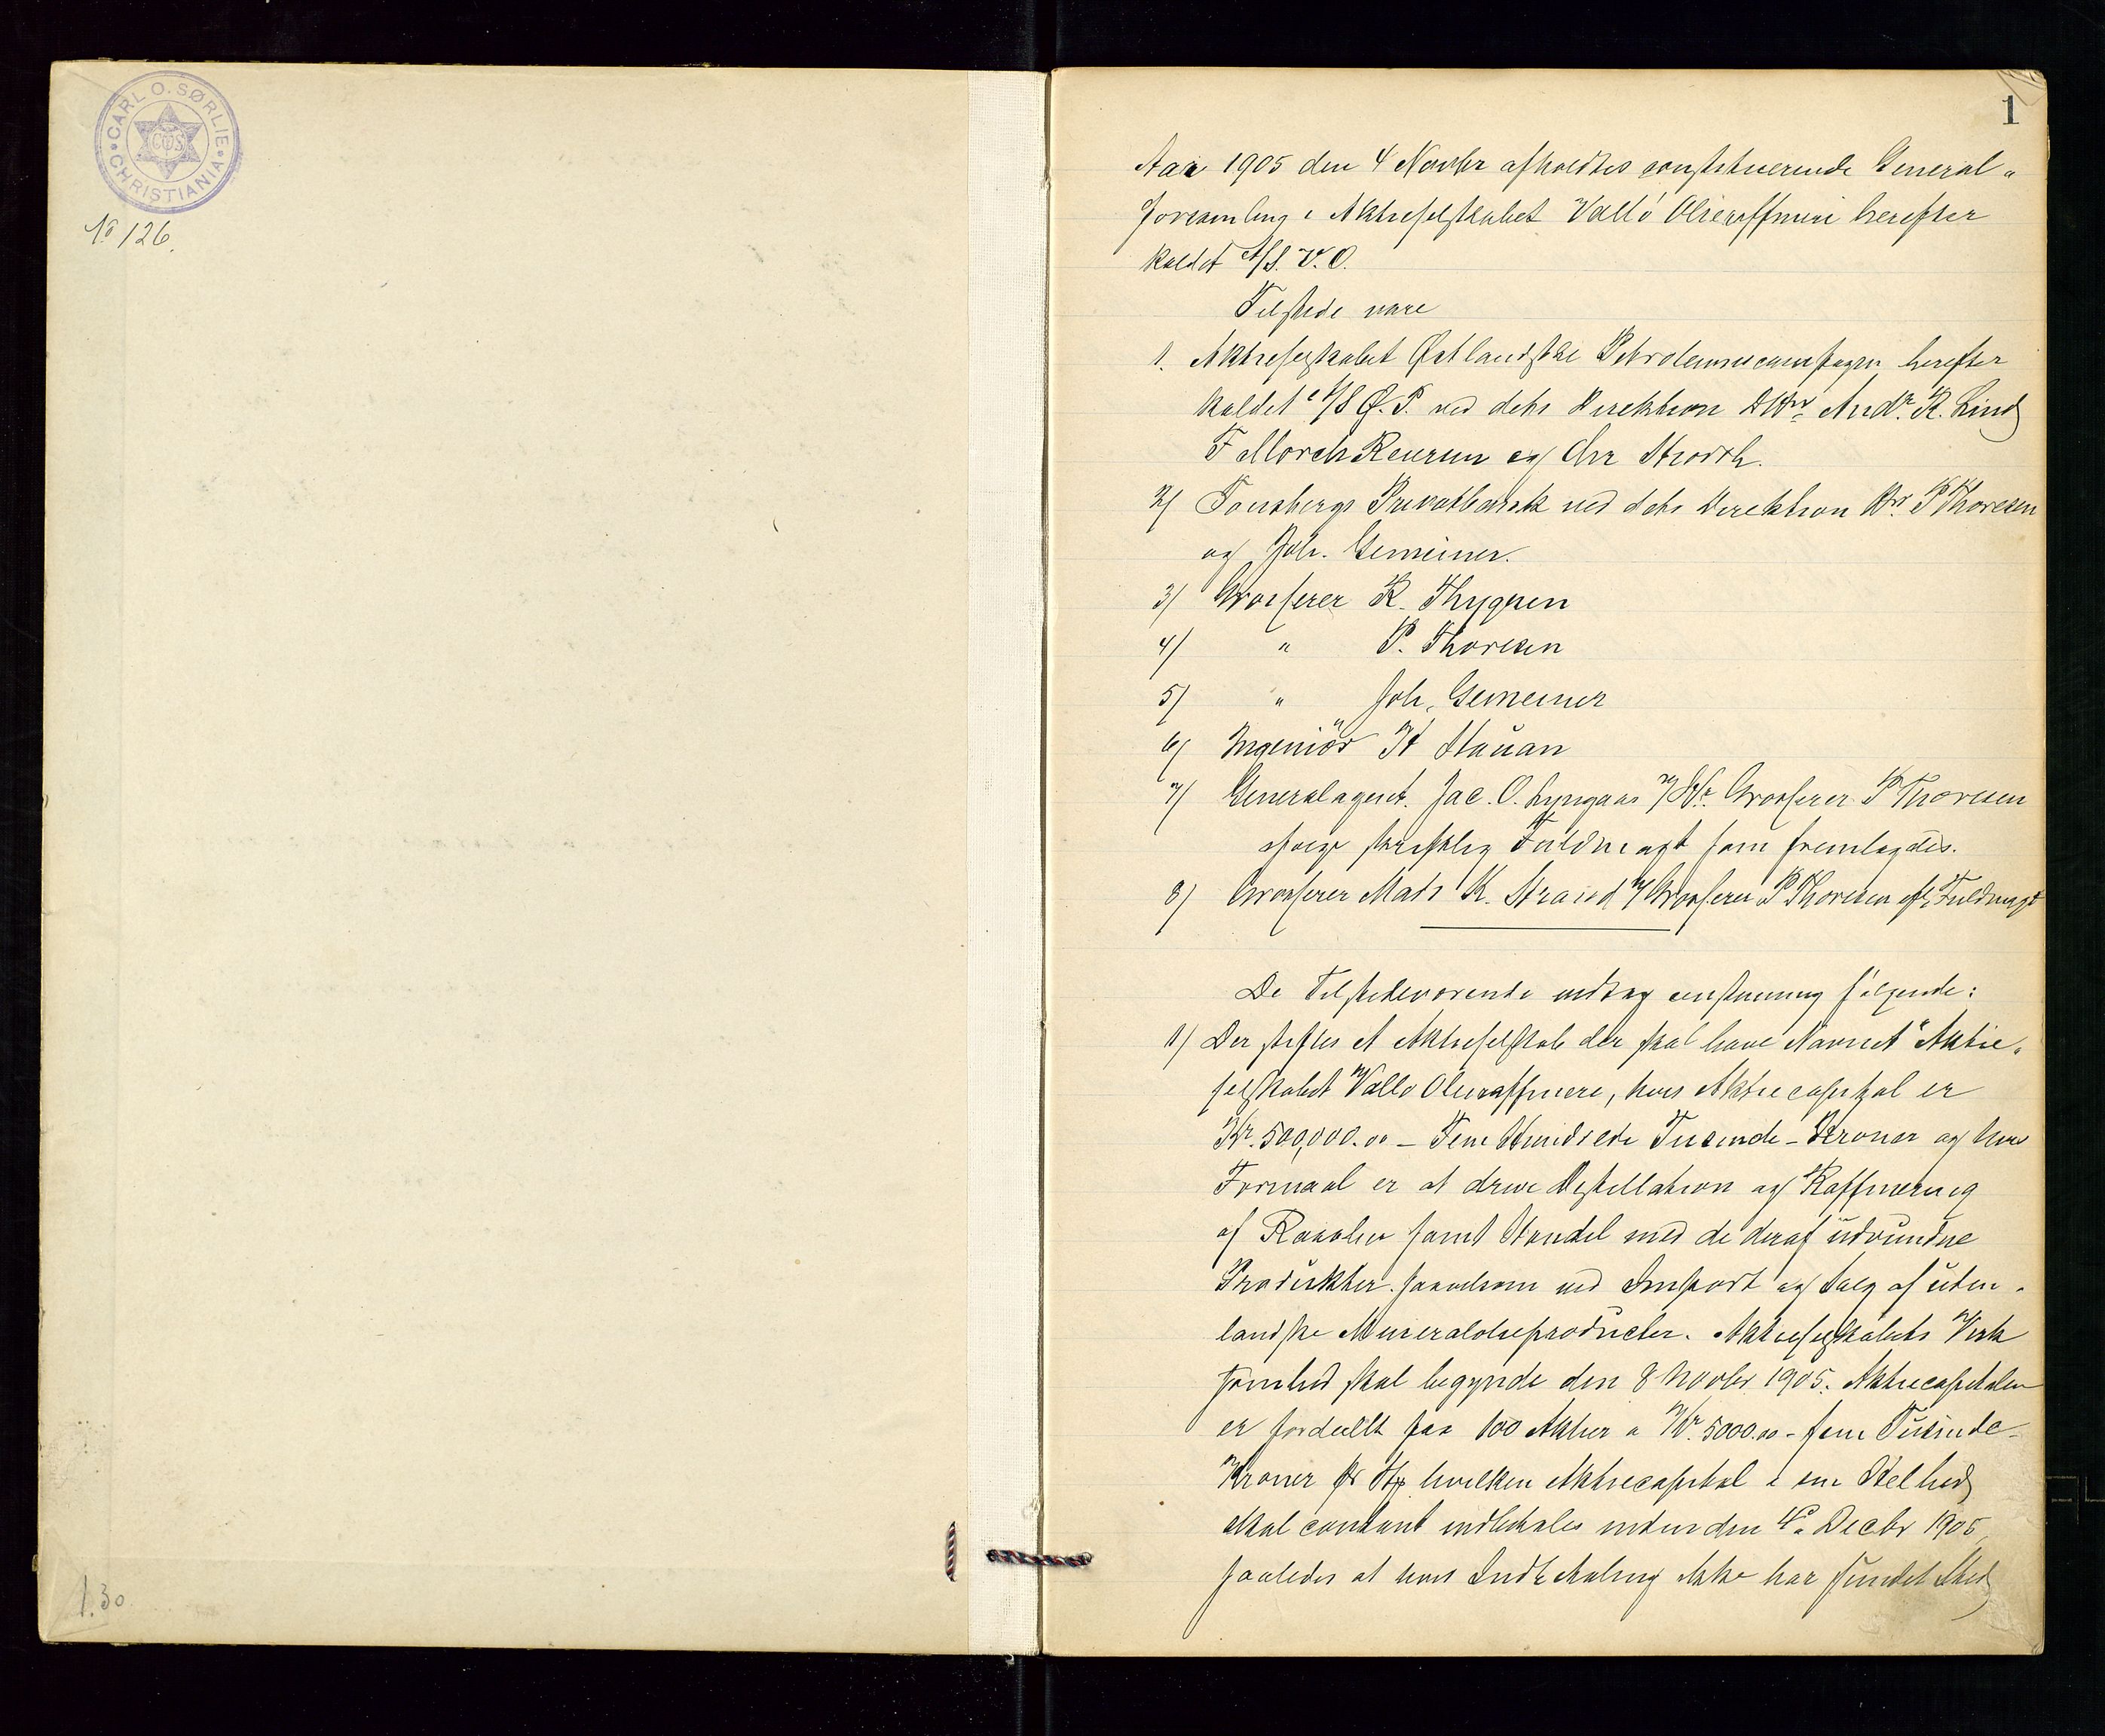 CARL O. SØRLIE
CHRISTIANIA
No 126.
1.30
1
Aar 1905 den 4 Novbr afholdtes constituerende General-
forsamling i Aktieselskabet Vallö Olieraffineri herefter
kaldet A/S. V.O.
Tilstede vare
1. Aktieselskabet Østlandske Petroleumscompagni herefter
kaldet A/S Ø.P. ved dets Direktion Andr. K. Lind
F Morch Reuren og Chr Storck.
2/ Tønsbergs Privatbank ved dets Direktion Hr. P Thoresen
og Joh. Gemeiner.
3/ Grosserer K. Thygesen
4/ " P. Thoresen
5/ " Joh. Gemeiner
6/ Ingeniör H Hauan
7/ Generalagent. Jac. O. Lyngaas v/ Hr. Grosserer P Thoresen
ifølge skriftlig Fuldmagt som fremlagdes.
8/ Grosserer Mads K. Straud v/ Grosserer P Thoresen eft. Fuldmagt
De Tilstedeværende vedtog eenstemmig følgende:
1/ Der stiftes et Aktieselskab der skal have Navnet "Aktie-
selskabet Vallö Olieraffineri, hvis Aktiecapital er
Kr. 500,000.00 – Fem Hundrede Tusinde – Kroner og hvis
Formaal er at drive Destillation og Raffinering
af Raaolier samt Handel med de deraf udvundne
Produkter saavelsom ved Import og Salg af uden-
landske Mineralolieproducter. Aktieselskabets Virk
somhed skal begynde den 8 Novbr 1905. Aktiecapitalen
er fordeelt paa 100 Aktier a Kr. 5000.00 – fem Tusinde –
Kroner pr St hvilken Aktiecapital i sin Helhed
skal contant indbetales inden den Decbr 1905,
saaledes at hvis Indbetaling ikke har fundet Sted